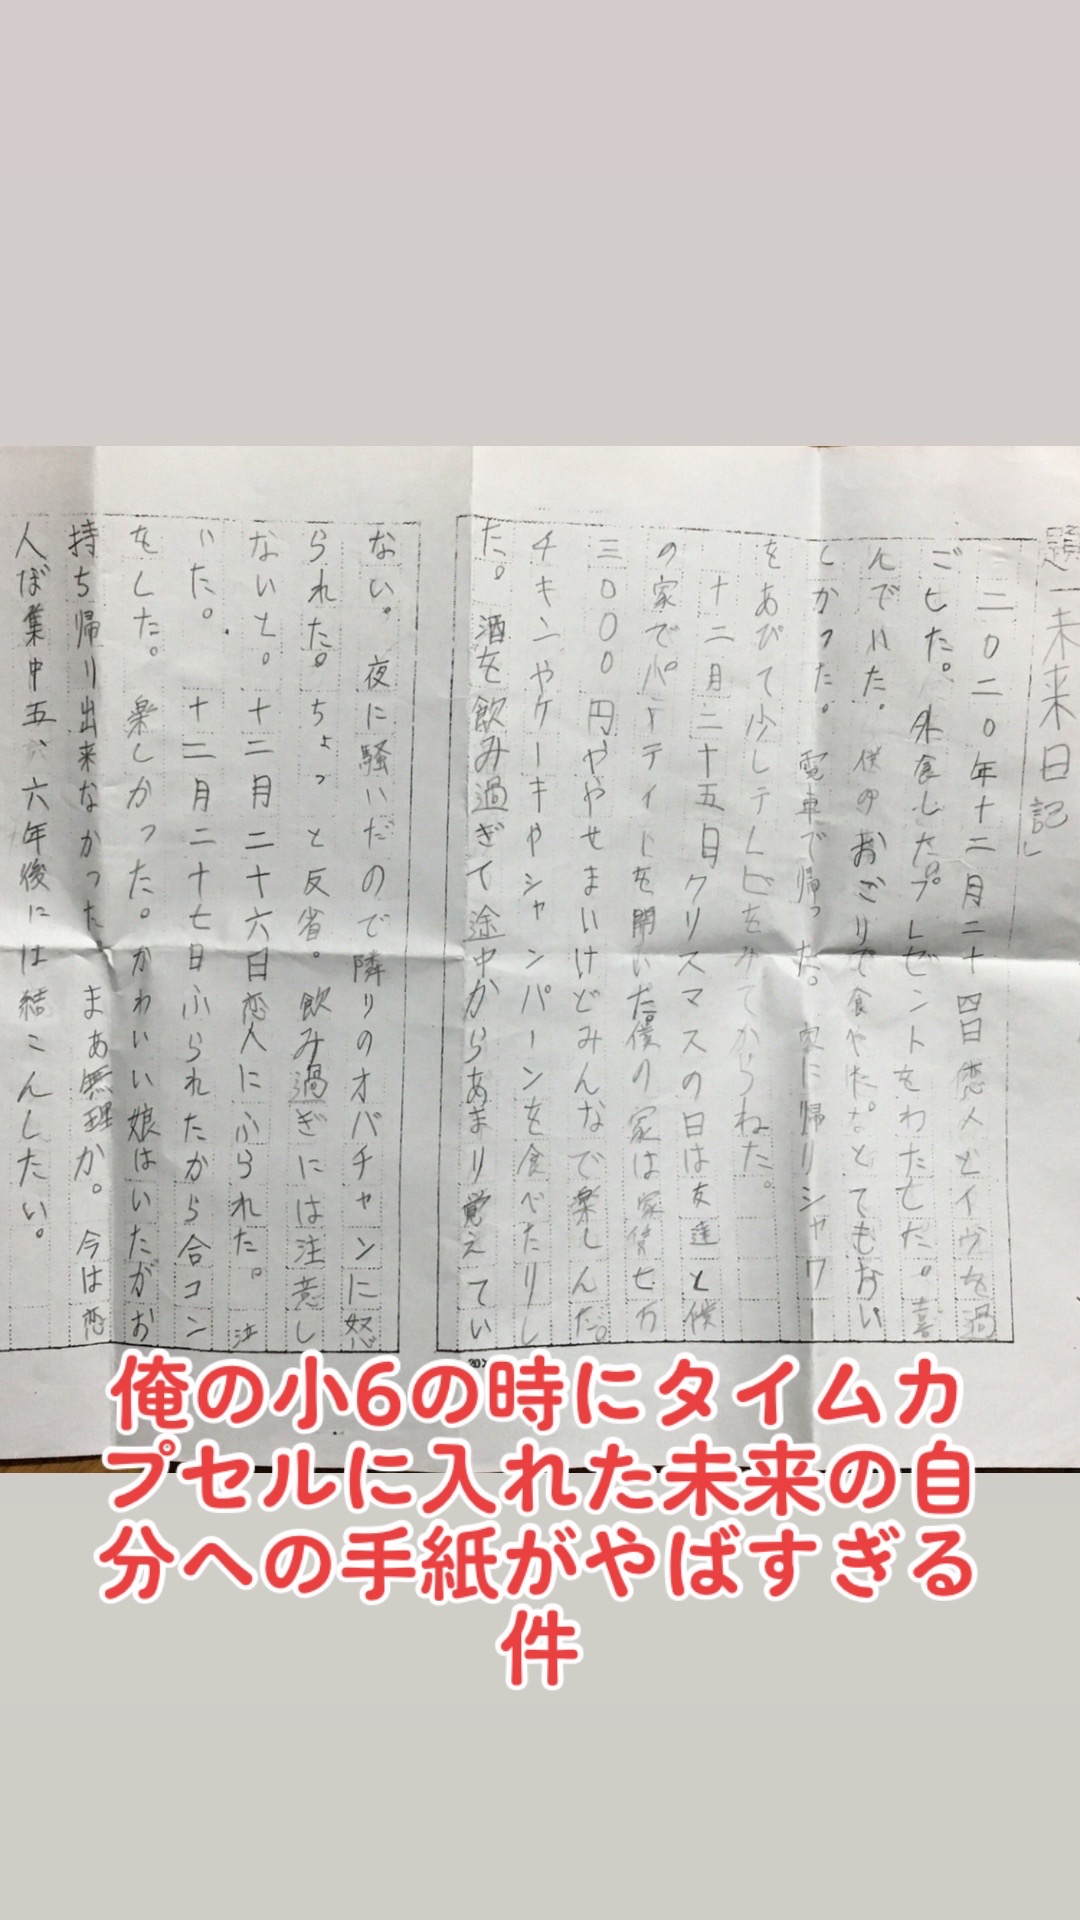 題「未来日記」
二〇二〇年十二月二十四日恋人とイヴを過
ごした。外食した。プレゼントをわたした。喜
んでいた。僕のおごりで食べた。とてもおい
しかった。電車で帰った。家に帰りシャワー
をあびて少しテレビをみてからねた。
十二月二十五日クリスマスの日は友達と僕
の家でパーティーを開いた。僕の家は家賃七万
三〇〇〇円ややせまいけどみんなで楽しんだ。
チキンやケーキやシャンパーンを食べたりし
た。酒を飲み過ぎて途中からあまり覚えてい
ない。夜に騒いだので隣りのオバチャンに怒
られた。ちょっと反省。飲み過ぎには注意し
ないと。十二月二十六日恋人にふられた。泣
いた。十二月二十七日ふられたから合コン
をした。楽しかった。かわいい娘はいたがお
持ち帰り出来なかった。まぁ無理か。今は恋
人ぼ集中五、六年後には結こんしたい。
俺の小6の時にタイムカ
プセルに入れた未来の自
分への手紙がやばすぎる
件